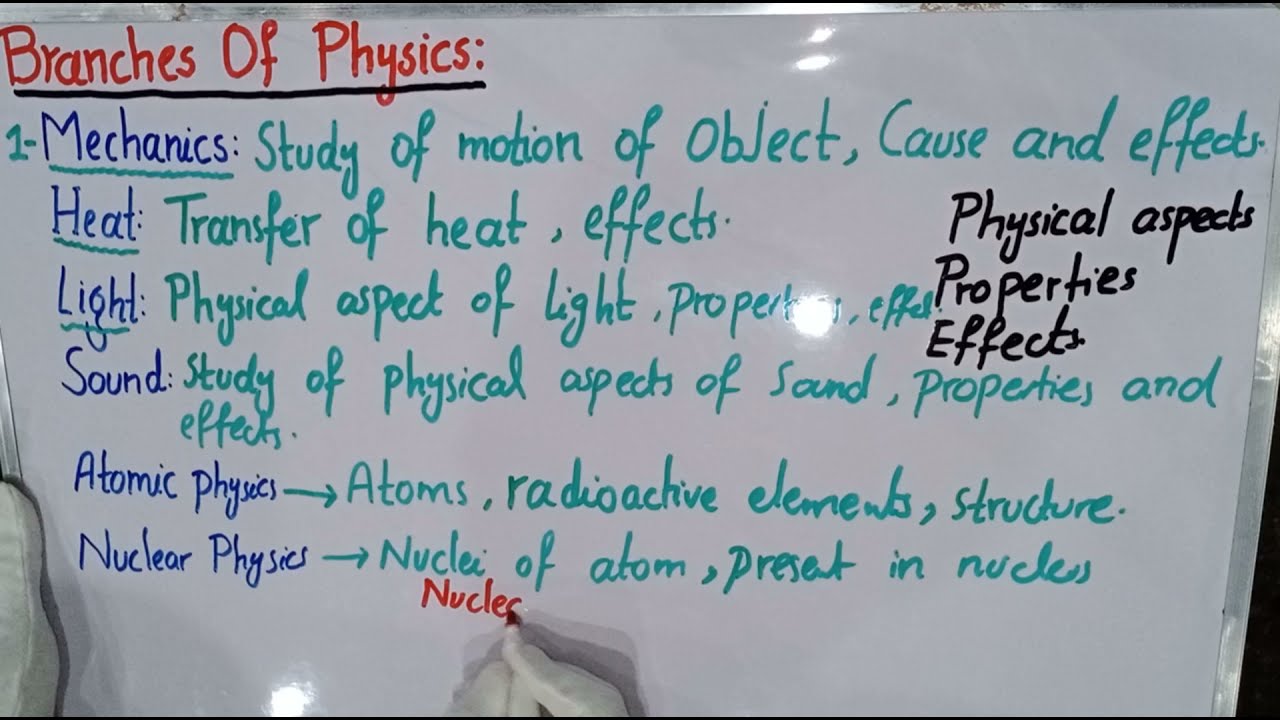 Branches Of Physics:
1- Mechanics: Study of motion of Object, Cause and effects.
Heat: Transfer of heat, effects.
Physical aspects
Light: Physical aspect of Light, properties, effect.
Properties
Effects.
Sound: Study of physical aspects of Sound, properties and
effects.
Atomic physics → Atoms, radioactive elements, structure.
Nuclear Physics → Nuclei of atom, present in nucleus
Nucleo